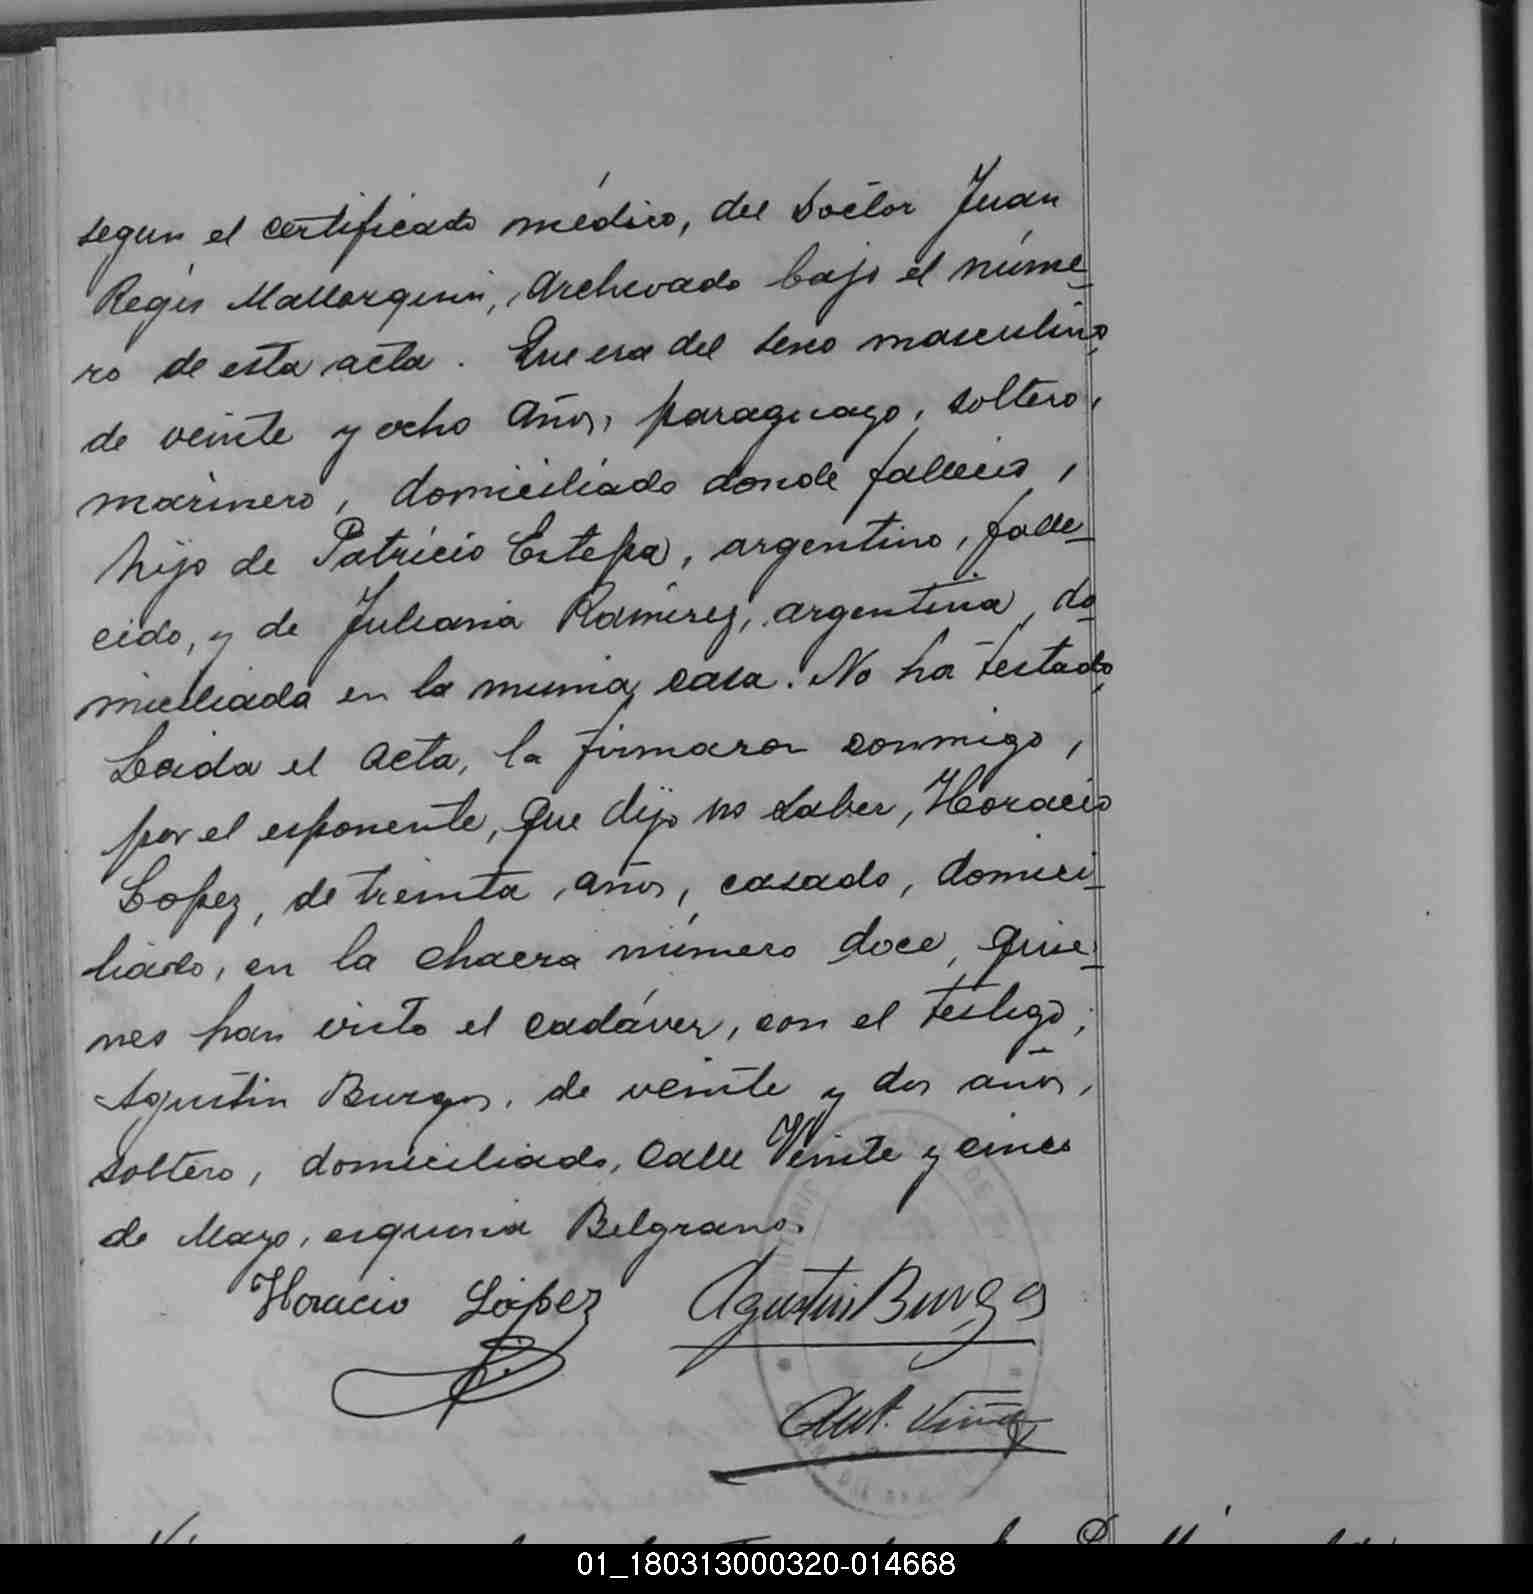 segun el certificado médico, del Doctor Juan
Regis Mallorquin, Archivado bajo el núme-
ro de esta acta. Que era del sexo masculino,
de veinte y ocho años, paraguayo, soltero,
marinero, domiciliado donde fallecio,
hijo de Patricio Estepa, argentino, falle-
cido, y de Juliana Ramirez, argentina, do-
miciliada en la misma casa. No ha testado,
Leida el acta, la firmaron conmigo,
por el esponente, que dijo no saber, Horacio
Lopez, de treinta años, casado, domici-
liado, en la chacra número doce, quie-
nes han visto el cadáver, con el testigo,
Agustin Burgos, de veinte y dos años,
soltero, domiciliado, Calle Veinte y cinco
de Mayo, esquina Belgrano.
Horacio López Agustin Burgos
Ant.
01_180313000320-014668